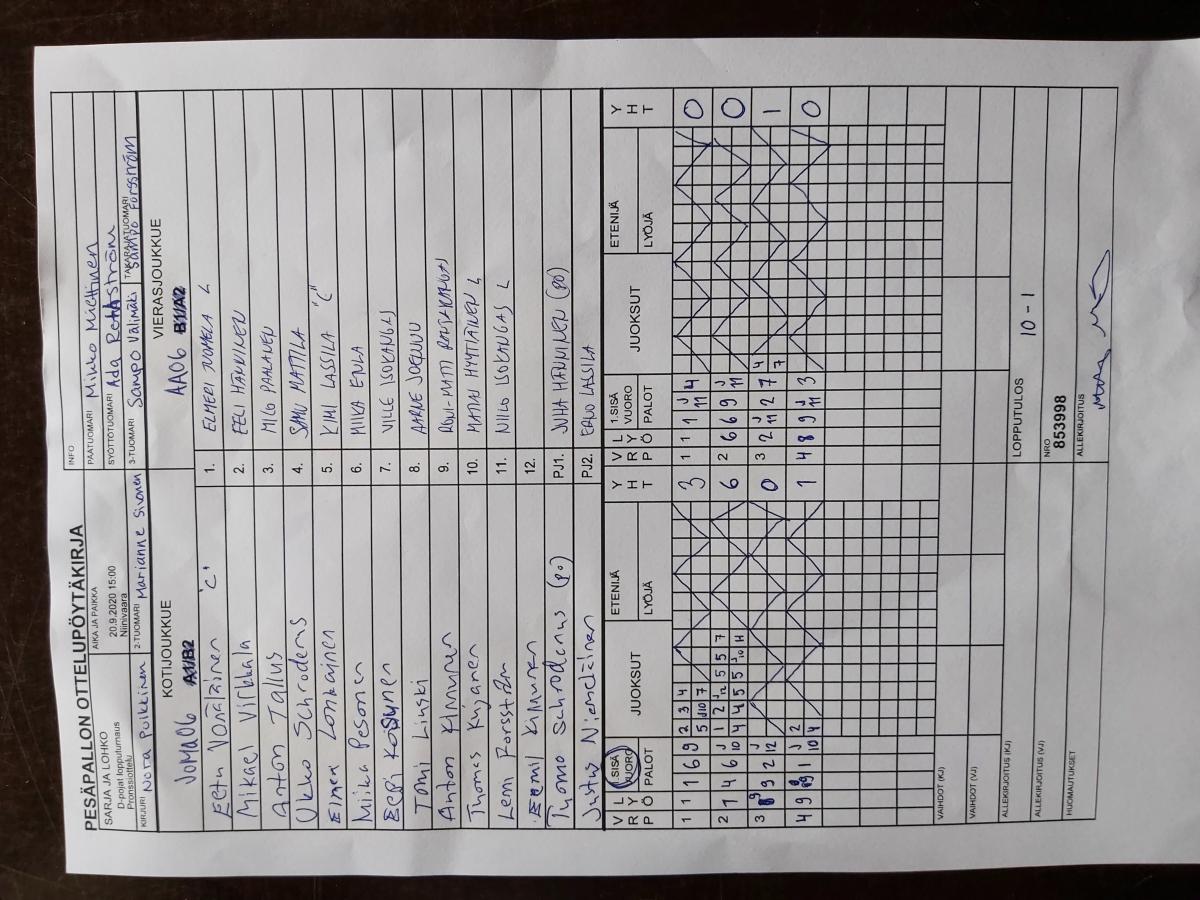 PESÄPALLON OTTELUPÖYTÄKIRJA
SARJA JA LOHKO
D-pojat lopputurnaus
Pronssiottelu
AIKA JA PAIKKA
20.9.2020 15:00
Niinivaara
INFO
PÄÄTUOMARI Mikko Miettinen
SYÖTTÖTUOMARI Ada
KIRJURI Nora Puikkinen 2-TUOMARI Marianne Sivonen 3-TUOMARI Sampo Välimäki TAKARAJATUOMARI Sampo Forsström
KOTIJOUKKUE
JoMa06 A1/B2
VIERASJOUKKUE
AA06 B1/A2
Eetu "C" 1. ELMERI TUOMELA L
Mikael Virkkala 2. EELI HÄNNINEN
Anton Tallus 3. MILO PAALANEN
Ukko Schroderus 4. SAMU MATTILA
Elmer Lonkainen 5. KIMI LASSILA "C"
Miika Pesonen 6. MIIKA ENLA
Eepi 7. VILLE ISOKANGAS
Tomi Linski 8. AARNE
Anton Kinnunen 9. RONI-MATTI
Thomas Kujanen 10. MATIAS HYYTIÄINEN L
Lemi Forsström 11. NIILO ISOKANGAS L
Eemil Kinnunen 12.
Tuomo Schroderus (po) PJ1. JUHA HÄNNINEN (PO)
Justus Niemeläinen PJ2. ERVO LASSILA
V R P L Y Ö 1.SISÄ VUORO PALOT JUOKSUT ETENIJÄ LYÖJÄ Y H T V R P L Y Ö 1.SISÄ VUORO PALOT JUOKSUT ETENIJÄ LYÖJÄ Y H T
1 1 1 6 9 2 3 4 3 1 1 1 J 11 4 0
5 J10 7
2 1 4 6 J 10 1 2 J12 5 5 7 6 2 6 6 9 J 11 0
4 4 5 5 J10 11
3 9 2 J 12 0 3 2 J 11 2 7 4 7 1
4 9 1 J 10 2 4 1 4 8 9 J 11 3 0
VAIHDOT (KJ)
VAIHDOT (VJ)
ALLEKIRJOITUS (KJ)
LOPPUTULOS
10 - 1
ALLEKIRJOITUS (VJ)
NRO
853998
HUOMAUTUKSET
ALLEKIRJOITUS